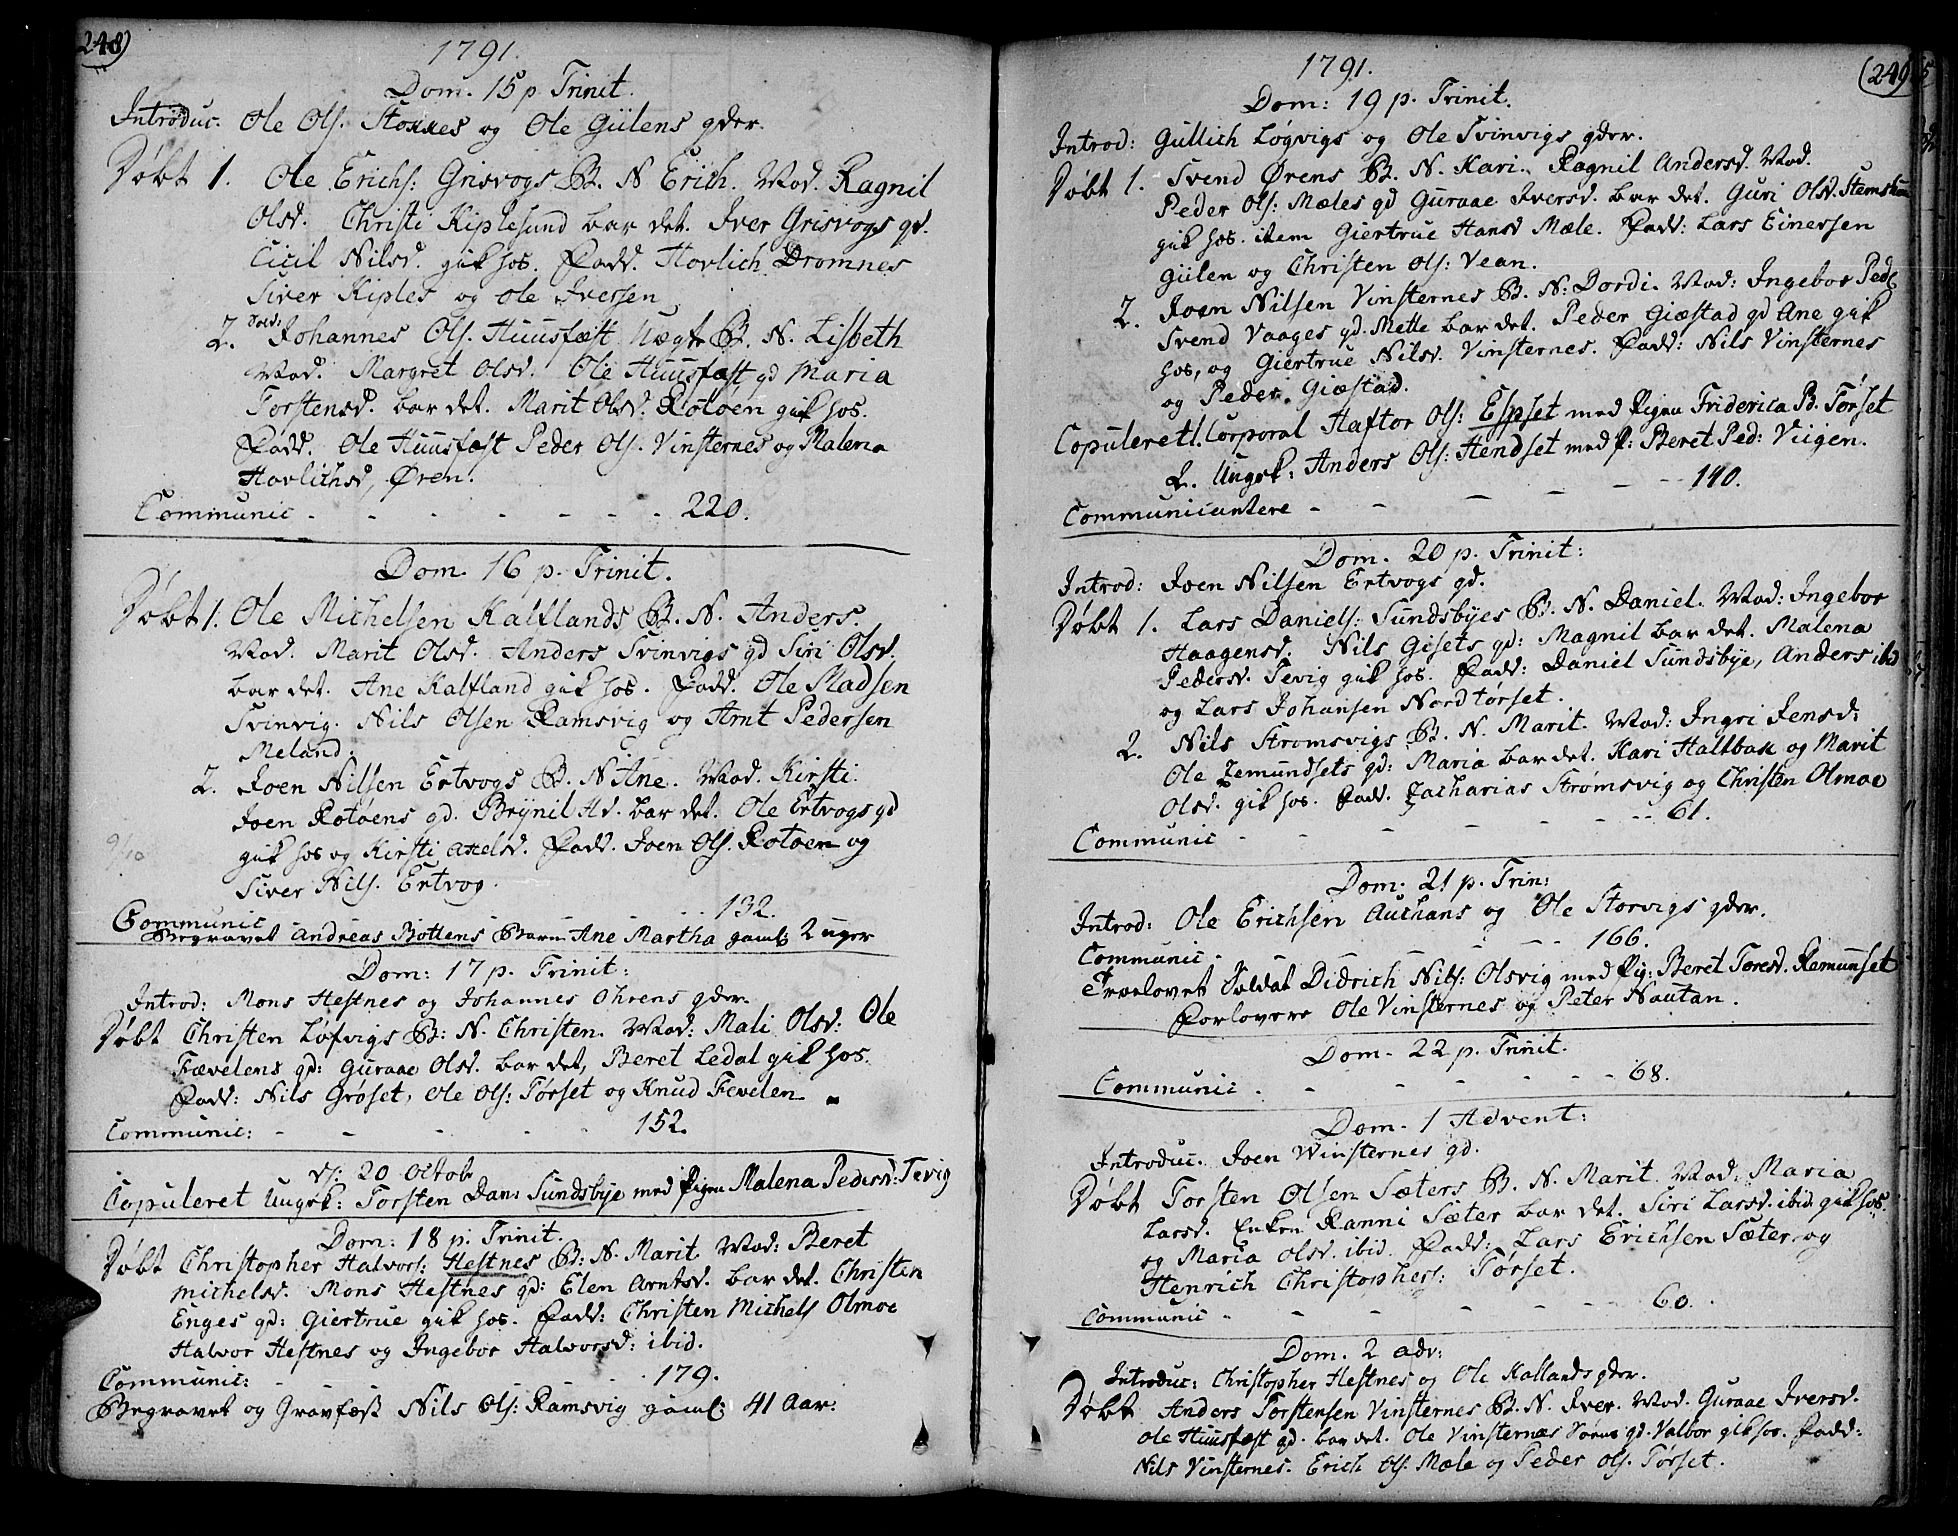 248)
1791.
Dom. 15 p. Trinit.
Introduc. Ole Ols. Stokkes og Ole Gülens qder.
Døbt 1. Ole Erichs: Grisvogs B. N. Erich. Mod. Ragnil
Olsd. Christi Kiplesund bar det. Iver Grisvogs qd.
Cicil Nilsd. gik hos. Fadd. Hovlich Dromnes
Siver Kiples og Ole Iversen
2. Sold: Johannes Ols. Huusfæst Uægte B. N. Lisbeth
Mod. Margret Olsd. Ole Huusfæst qd Maria
Torstensd. bar det. Marit Olsd. Rotøen gik hos.
Fadd. Ole Huusfæst Peder Ols. Vinsternes og Malena
Hovlichsd, Øren.
Communic - - - - - - - 220.
Dom. 16 p. Trinit.
Døbt 1. Ole Michelsen Kalflands B. N. Anders.
Mod. Marit Olsd. Anders Svinvigs qd Siri Olsd.
bar det. Ane Kalfland gik hos. Fadd. Ole Madsen
Svinvig. Nils Olsen Ramsvig og Arnt Pedersen
Meland:
2. Joen Nilsen Ertvogs B. N Ane. Mod. Kirsti.
Joen Rotøens qd. Brÿnil Hd. bar det. Ole Ertvogs qd
9/10 gik hos og Kirsti Axelsd. Fadd. Joen Ols. Rotøen og
Siver Nils. Ertvog.
Communic - - - - 132.
Begravet Andreas Bottens Barn Ane Martha gaml: 2 uger
Dom: 17 p. Trinit:
Introd: Mons Hestnes og Johannes Ohrens qder.
Døbt Christen Løfvigs B: N. Christen. Mod: Mali Olsd: Ole
Fævelens qd: Guraae Olsd. bar det, Beret Ledal gik hos.
Fadd: Nils Grøset, Ole Ols: Tørset og Knud Fevelen
Communic: - - - - 152.
d: 20 Octob
Copuleret Ungk: Torsten Dan: Sundsbye med Pigen Malena Pedersd: Tevig
Dom: 18 p. Trinit.
Døbt Christopher Halvors: Hestnes B: N. Marit. Mod: Beret
Michelsd. Mons Hestnes qd: Elen Arntsd. bar det. Christen
Enges qd: Giertrue gik hos. Fadd: Christen Michels Olmoe
Halvor Hestnes og Ingebor Halvorsd: ibid.
Communic: - - - - 179.
Begravet og Gravfæst Nils Ols: Ramsvig gaml: 41 Aar:
(249
1791.
Dom: 19 p. Trinit.
Introd: Gullich Løgvigs og Ole Svinvigs qder.
Døbt 1. Svend Ørens B. N. Kari. Ragnil Andersd. Mod.
Peder Ols: Mæles qd Guraae Iversd. bar det. Guri Olsd.
gik hos. item Giertrue Hansd Mæle. Fadd: Lars Einersen
Gülen og Christen Ols: Vean.
2. Joen Nilsen Vinsternes B. N: Dordi. Mod: Ingebor Peds
Svend Vaages qd. Mette bar det. Peder Giæstad qd Ane gik
hos, og Giertrue Nilsd. Vinsternes. Fadd: Nils Vinsternes
og Peder Giæstad.
Copuleret 1. Corporal Haftor Ols: Espset med Pigen Friderica B. Tørset
2. Ungk: Anders Ols: Hendset med P: Beret Ped: Viigen.
Communicantere - - - - - 140.
Dom. 20 p. Trinit:
Introd: Joen Nilsen Ertvogs qd.
Døbt 1. Lars Daniels: Sundsbyes B. N. Daniel. Mod: Ingebor
Haagensd. Nils Gisets qd: Magnil bar det. Malena
Pedersd. Tevig gik hos. Fadd: Daniel Sundsbye, Anders ibid
og Lars Johansen Nordtørset.
2. Nils Stromsvigs B. N. Marit. Mod: Ingri Jensd:
Ole Zemundsets qd: Maria bar det. Kari Halbak og Marit
Olsd. gik hos. Fadd. Zacharias Strømsvig og Christen Olmoe
Communic - - - - - 61.
Dom: 21 p. Trin:
Introd: Ole Erichsen Auchans og Ole Storvigs qder.
Communic - - - - 166.
Troelovet Soldat Didrich Nils: Olsvig med Pig: Beret Toresd. Remunset
Forlovere Ole Vinsternes og Peter Nautan.
Dom. 22 p. Trinit.
Communic - - - - 68.
Dom. 1 Advent:
Introduc. Joen Winsternes qd.
Døbt Torsten Olsen Sæters B. N. Marit. Mod: Maria
Larsd. Enken Ranni Sæter bar det. Siri Larsd. ibid. gik hos.
og Maria Olsd. ibid. Fadd: Lars Erichsen Sæter og
Henrich Christophers: Tørset.
Communic - - - - 60.
Dom. 2 adv:
Introduc: Christopher Hestnes og Ole Kallands qder.
Døbt Anders Torstensen Vinsternes B. N. Iver. Mod. Guraae Iversd.
Ole Huusfæst qd. bar det. Ole Vinsternes Søns qd. Valbor gik hos. Fadd:
Nils Vinsternes. Erich Ols. Mæle og Peder Ols. Tørset.